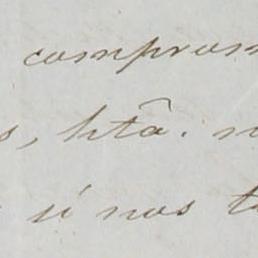 comprom
s, htâ. n
si nos t